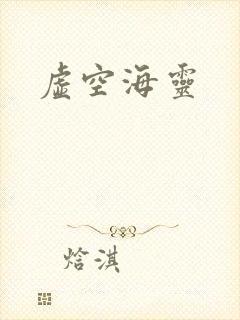 虛空海靈
焓淇